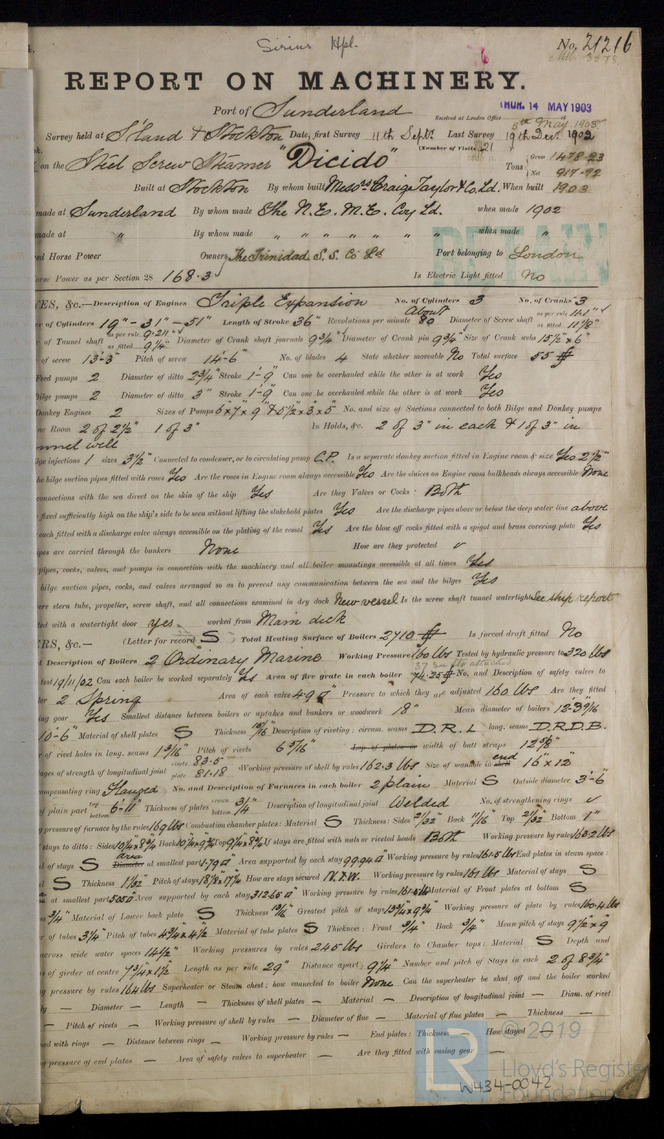 Sirius Hpl.
No. 21216
REPORT ON MACHINERY.
Port of Sunderland
Received at London Office THUR. 14 MAY 1903
Survey held at S'land & Stockton Date, first Survey 11th Septr. Last Survey 19th Dec. 1902
(Number of Visits 21)
on the Steel Screw Steamer "Dicido" Tons Gross 1478.23 Net 917.92
Built at Stockton By whom built Messrs Craig Taylor & Co. Ld. When built 1903
made at Sunderland By whom made The N.E. M.E. Coy Ld. when made 1902
made at " By whom made " " " " " " " when made "
Horse Power Owners The Trinidad S.S. Co Ld Port belonging to London
Horse Power as per Section 28 168.3 Is Electric Light fitted No
ES, &c.—Description of Engines Triple Expansion No. of Cylinders 3 No. of Cranks 3
of Cylinders 19" - 31" - 51" Length of Stroke 36" Revolutions per minute About 80 Diameter of Screw shaft as per rule 11.1" as fitted 11 7/8"
of Tunnel shaft as fitted 9 1/4" Diameter of Crank shaft journals 9 3/4" Diameter of Crank pin 9 3/4" Size of Crank webs 15 1/2 x 6"
of screw 13'-3" Pitch of screw 14'-6" No. of blades 4 State whether moveable No Total surface 55
Feed pumps 2 Diameter of ditto 2 3/4" Stroke 1'-9" Can one be overhauled while the other is at work Yes
Bilge pumps 2 Diameter of ditto 3" Stroke 1'-9" Can one be overhauled while the other is at work Yes
Donkey Engines 2 Sizes of Pumps 6 x 7 x 9 & 5 1/2 x 3 x 5" No. and size of Suctions connected to both Bilge and Donkey pumps
Room 2 of 2 1/2" 1 of 3" In Holds, &c. 2 of 3" in each & 1 of 3" in
tunnel well
injections 1 sizes 3 1/2" Connected to condenser, or to circulating pump C.P. Is a separate donkey suction fitted in Engine room & size Yes 2 1/2"
the bilge suction pipes fitted with roses Yes Are the roses in Engine room always accessible Yes Are the sluices on Engine room bulkheads always accessible None
connections with the sea direct on the skin of the ship Yes Are they Valves or Cocks Both
fixed sufficiently high on the ship's side to be seen without lifting the stokehold plates Yes Are the discharge pipes above or below the deep water line above
each fitted with a discharge valve always accessible on the plating of the vessel Yes Are the blow off cocks fitted with a spigot and brass covering plate Yes
pipes are carried through the bunkers None How are they protected ✓
pipes, cocks, valves, and pumps in connection with the machinery and all boiler mountings accessible at all times Yes
bilge suction pipes, cocks, and valves arranged so as to prevent any communication between the sea and the bilges Yes
stern tube, propeller, screw shaft, and all connections examined in dry dock New vessel Is the screw shaft tunnel watertight See ship report
fitted with a watertight door yes. worked from Main deck
ERS, &c.— (Letter for record S) Total Heating Surface of Boilers 2710 Is forced draft fitted No
Description of Boilers 2 Ordinary Marine Working Pressure 160 lbs Tested by hydraulic pressure to 320 lbs
19/11/02 Can each boiler be worked separately Yes Area of fire grate in each boiler No. and Description of safety valves to
2 Spring Area of each valve 4.9 Pressure to which they are adjusted 160 lbs Are they fitted
gear Yes Smallest distance between boilers or uptakes and bunkers or woodwork 18" Mean diameter of boilers
10-6 Material of shell plates S Thickness Description of riveting: circum. seams D.R.L long. seams D.R.D.B.
of rivet holes in long. seams 1 3/16 Pitch of rivets width of butt straps
of strength of longitudinal joint rivets 83.5 plate 81.18 Working pressure of shell by rules 162.3 lbs Size of manhole in end 16 x 12"
ring Flanged No. and Description of Furnaces in each boiler 2 plain Material S Outside diameter 3'-6"
of plain part 6'-11" Thickness of plates 3/4" Description of longitudinal joint Welded No. of strengthening rings ✓
pressure of furnace by the rules 169 lbs Combustion chamber plates: Material S Thickness: Sides 21/32" Back 11/16" Top 21/32" Bottom 1"
of stays to ditto: Sides Back Top If stays are fitted with nuts or riveted heads Both Working pressure by rules 163.2 lbs
of stays S area at smallest part 1.79 Area supported by each stay 99.94 Working pressure by rules 161.5 lbs End plates in steam space:
S Thickness 1 1/32" Pitch of stays How are stays secured N.T.W. Working pressure by rules 161 lbs Material of stays S
at smallest part Area supported by each stay 312.65 Working pressure by rules Material of Front plates at bottom S
3/4" Material of Lower back plate S Thickness Greatest pitch of stays Working pressure of plate by rules 160.4 lbs
of tubes 3 1/4" Pitch of tubes Material of tube plates S Thickness: Front 3/4" Back 3/4" Mean pitch of stays 9 1/2 x 9
across wide water spaces 14 1/2" Working pressures by rules 245 lbs Girders to Chamber tops: Material S Depth and
of girder at centre 7 3/4 x 1 1/2 Length as per rule 29" Distance apart 9 1/4" Number and pitch of Stays in each 2 of 8 3/4"
pressure by rules 164 lbs Superheater or Steam chest; how connected to boiler None Can the superheater be shut off and the boiler worked
— Diameter — Length — Thickness of shell plates — Material — Description of longitudinal joint — Diam. of rivet
— Pitch of rivets — Working pressure of shell by rules — Diameter of flue — Material of flue plates — Thickness —
with rings — Distance between rings — Working pressure by rules — End plates: Thickness How stayed —
pressure of end plates — Area of safety valves to superheater — Are they fitted with easing gear —
© 2019
LR Lloyd's Register
Foundation
W434-0042